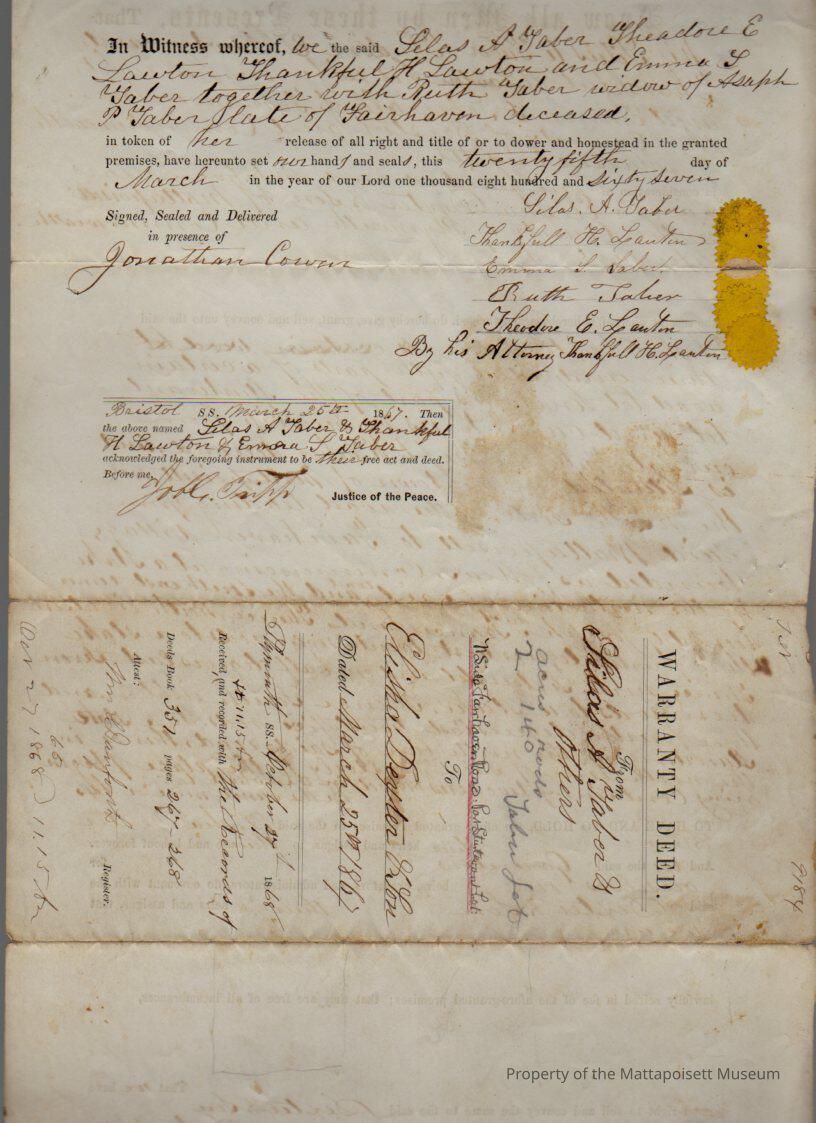 In Witness whereof, We the said Silas A Taber Theadore E
Lawton Thankful H Lawton and Emma S
Taber together with Ruth Taber widow of Asaph
P Taber late of Fairhaven deceased,
in token of her release of all right and title of or to dower and homestead in the granted
premises, have hereunto set our hands and seals, this twenty fifth day of
March in the year of our Lord one thousand eight hundred and sixty seven
Signed, Sealed and Delivered
in presence of
Jonathan Cowen
Silas. A. Taber
Thankfull H. Lawton
Emma S. Taber.
Ruth Taber
Theodore E. Lawton
By his Attorney Thankfull H. Lawton
Bristol SS. March 25th 1867. Then
the above named Silas A Taber & Thankful
H Lawton & Emma S Taber
acknowledged the foregoing instrument to be their free act and deed.
Before me,
Job C. Tripp Justice of the Peace.
9784
WARRANTY DEED.
From
Silas A Taber &
Others
acres rods
2 140 Taber Lot
To
Elisha Dexter & Son
Dated March 25th 1867
Plymouth SS. October 27 1868
at 11.15 AM
Received, and recorded with the Records of
Deeds Book 351 pages 267-268
Attest:
Wm S Danforth Register.
60
Oct 27 1868 11.15 Am
Property of the Mattapoisett Museum